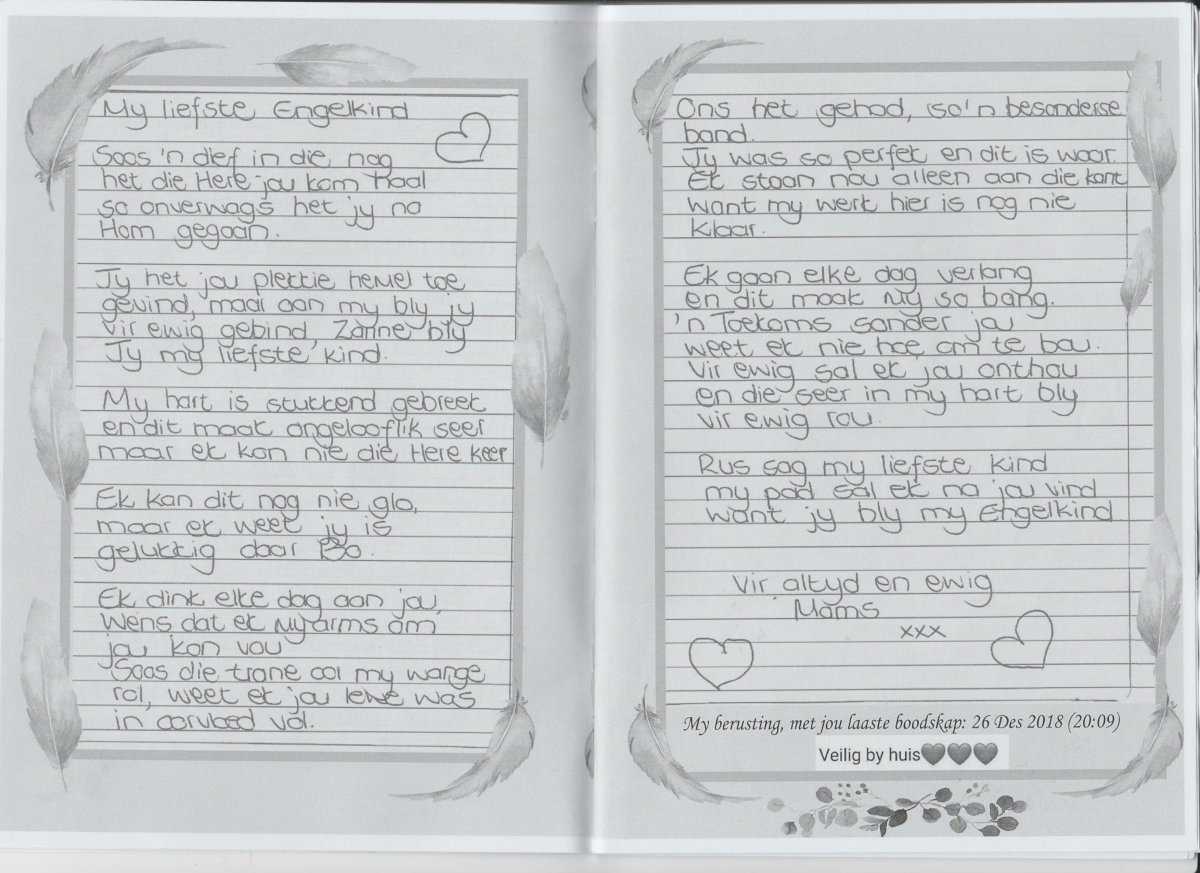 My liefste Engelkind
Soos 'n dief in die nag
het die Here jou kom haal
so onverwags het jy na
Hom gegaan.
Jy het jou plekkie hemel toe
gevind, maar aan my bly jy
vir ewig gebind, Zanne bly
Jy my liefste kind.
My hart is stukkend gebreek
en dit maak ongelooflik seer
maar ek kon nie die Here keer
Ek kan dit nog nie glo,
maar ek weet jy is
gelukkig daar Bo.
Ek dink elke dag aan jou,
Wens dat ek my arms om
jou kon vou
Soos die trane oor my wange
rol, weet ek jou lewe was
in oorvloed vol.
Ons het gehad, so 'n besonderse
band.
Jy was so perfek en dit is waar.
Ek staan nou alleen aan die kant
want my werk hier is nog nie
klaar.
Ek gaan elke dag verlang
en dit maak my so bang.
'n Toekoms sonder jou
weet ek nie hoe om te bou.
Vir ewig sal ek jou onthou
en die seer in my hart bly
vir ewig rou.
Rus sag my liefste kind
my pad sal ek na jou vind
want jy bly my Engelkind
Vir altyd en ewig
Moms
xxx
My berusting, met jou laaste boodskap: 26 Des 2018 (20:09)
Veilig by huis🖤🖤🖤